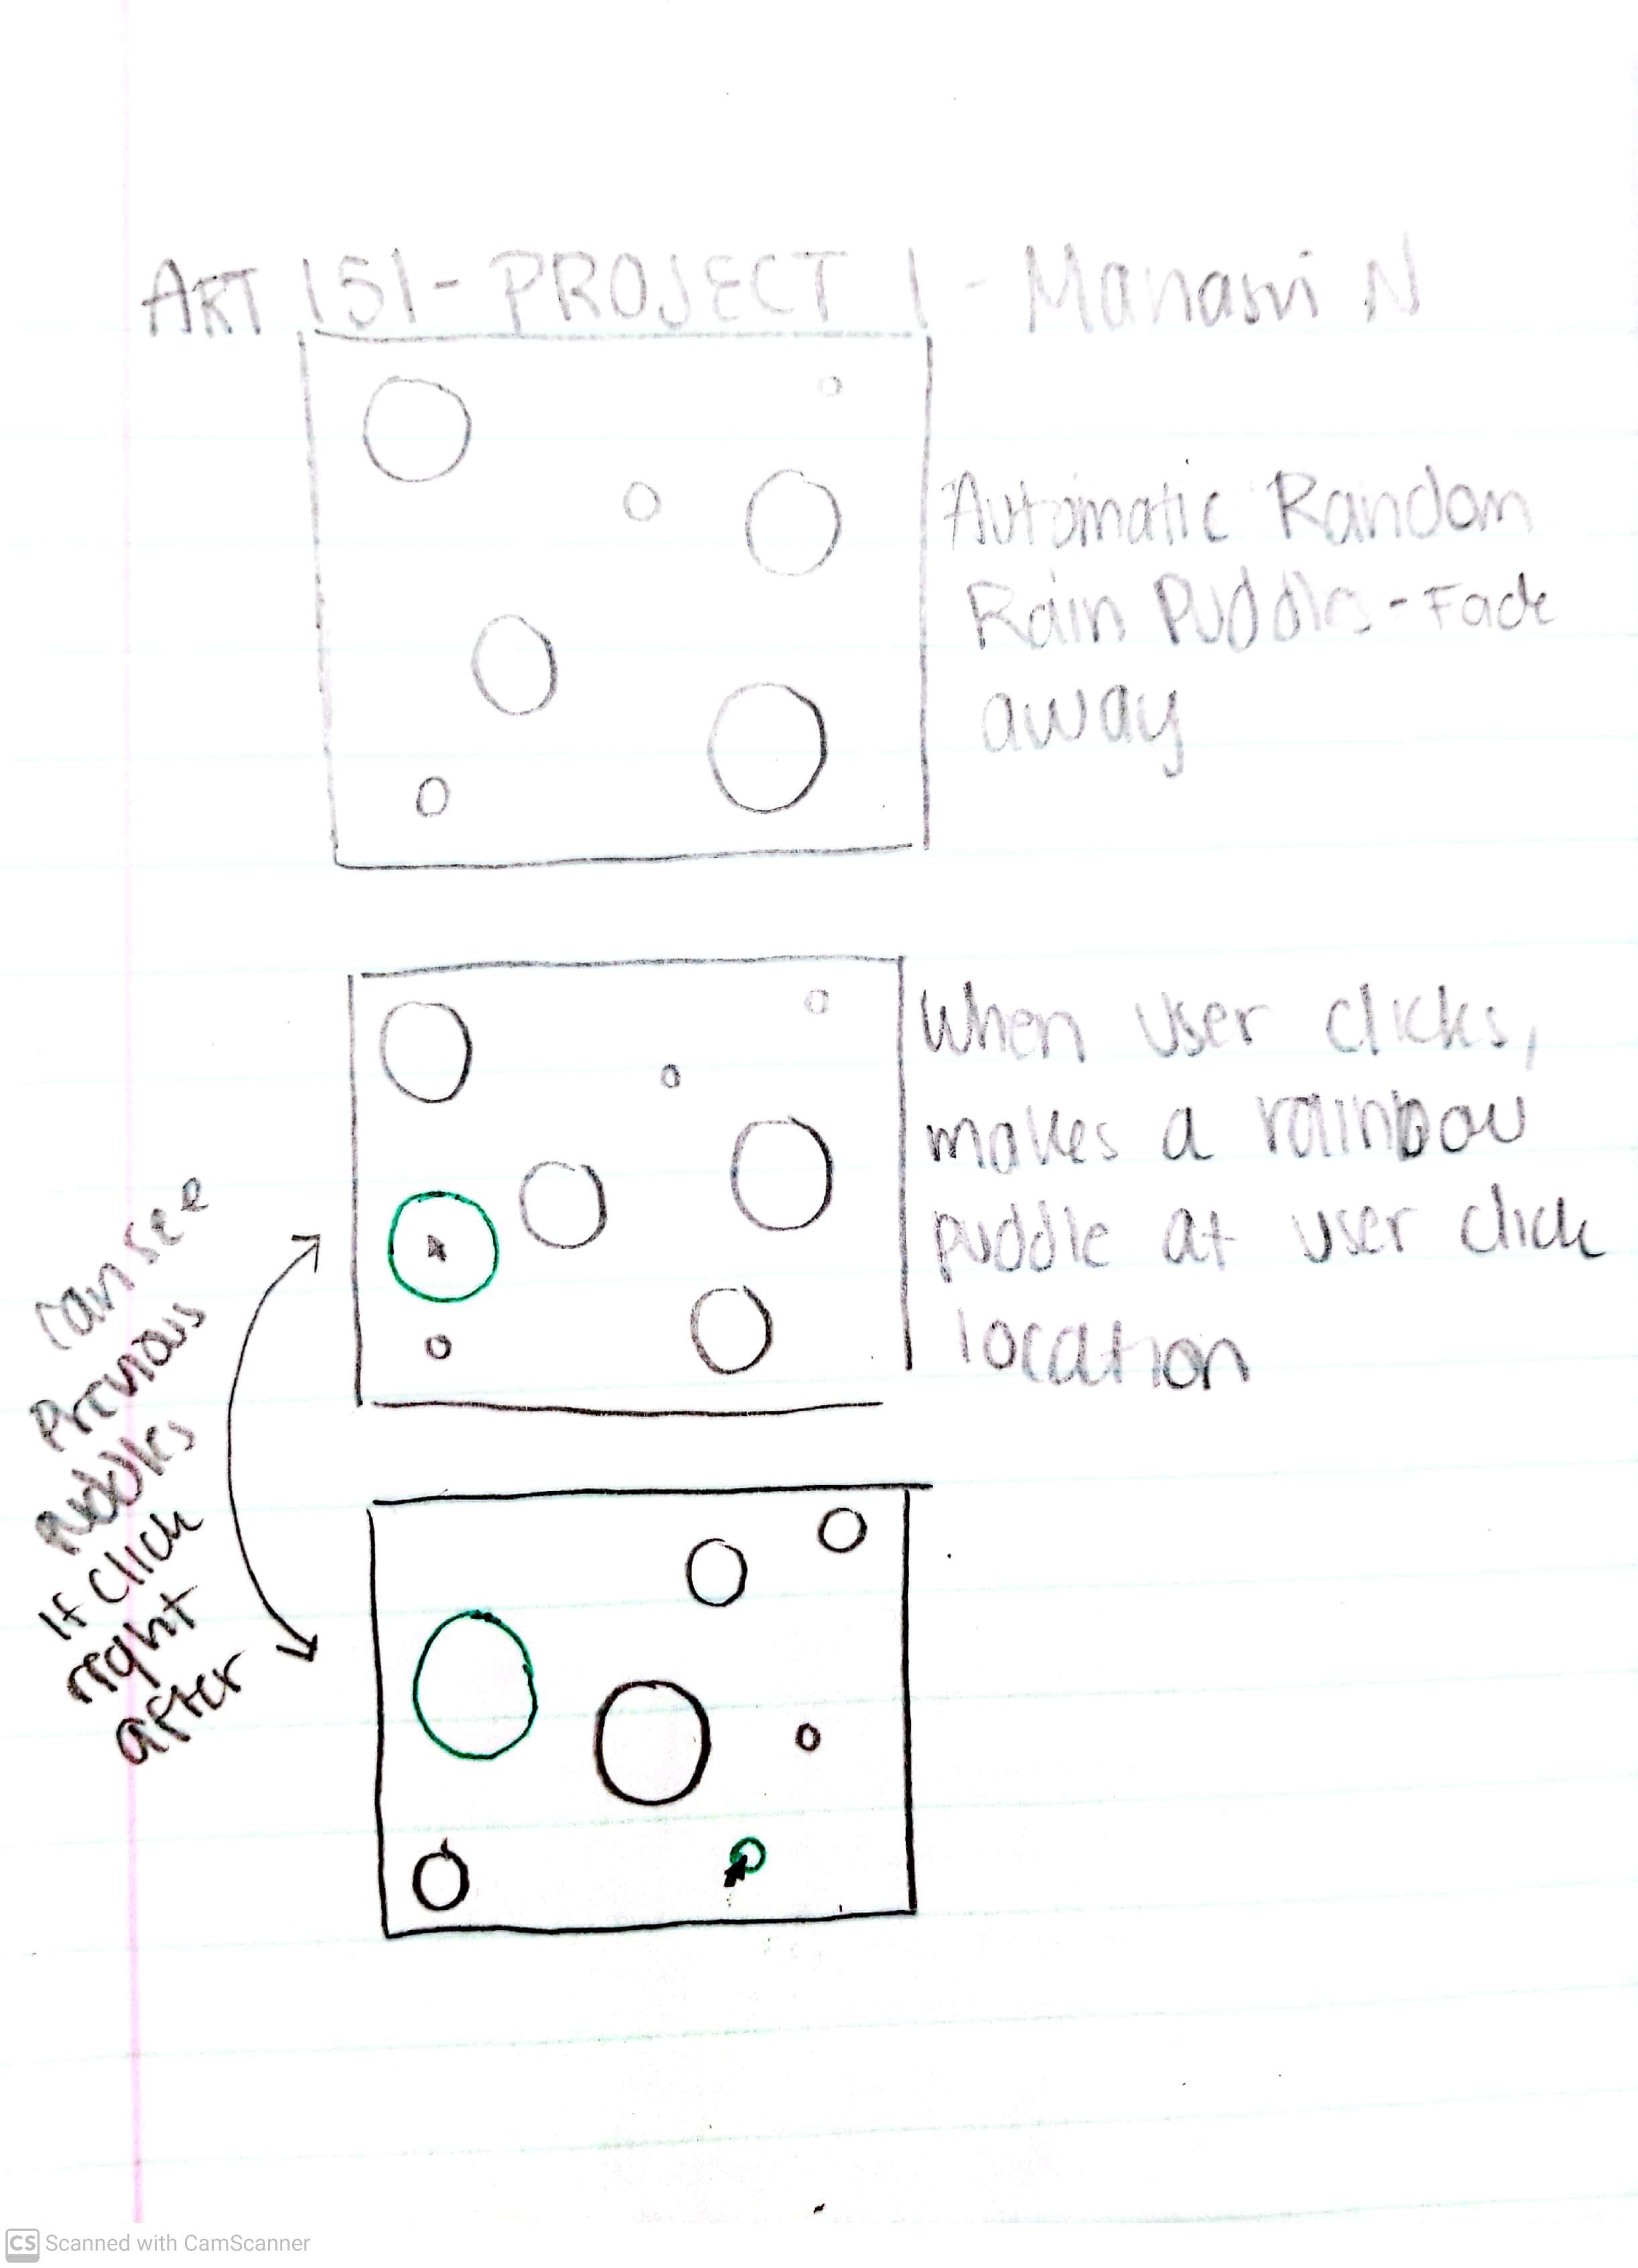 ART 151 - PROJECT 1 - Manasvi N
Automatic Random
Rain Puddles - Fade
away
When user clicks,
makes a rainbow
puddle at user click
location
can see
Previous
puddles
If click
right
after
CS Scanned with CamScanner